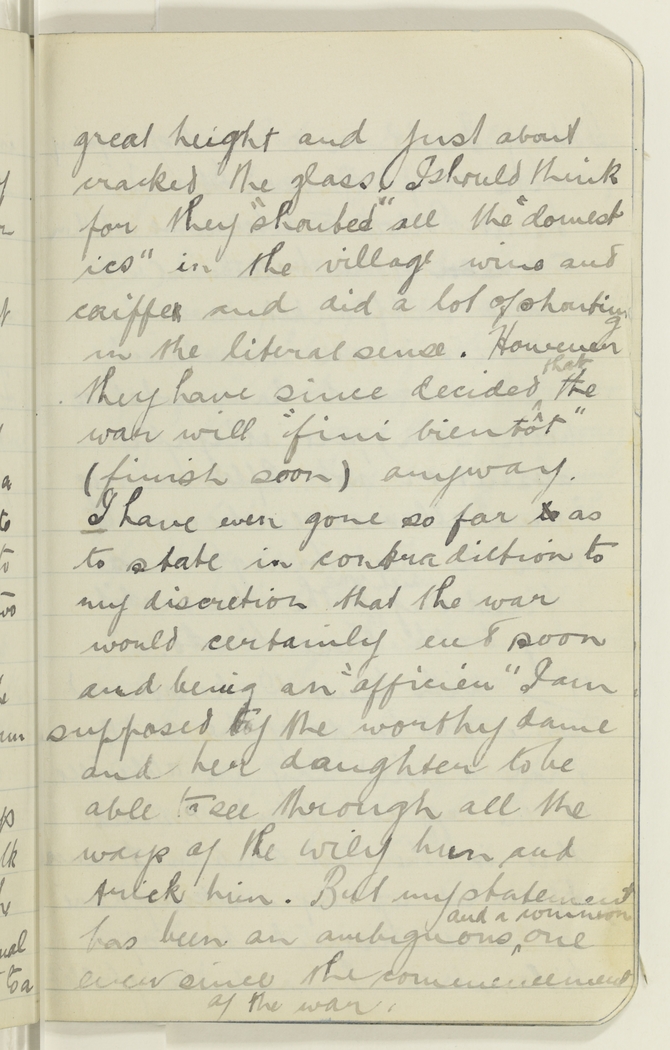 great height and just about
cracked the glass. I should think
for they "shouted" all the "domest
ics" in the village wine and
caiffe and did a lot of shouting
in the literal sense. However
they have since decided that the
war will "fini bientôt"
(finish soon) anyway.
I have even gone so far as
to state in contradiction to
my discretion that the war
would certainly end soon
and being an "officién" I am
supposed by the worthy dame
and her daughter to be
able to see through all the
ways of the wily hun and
trick him. But my statement
has been an ambiguous, and a common one
ever since the commencement
of the war.